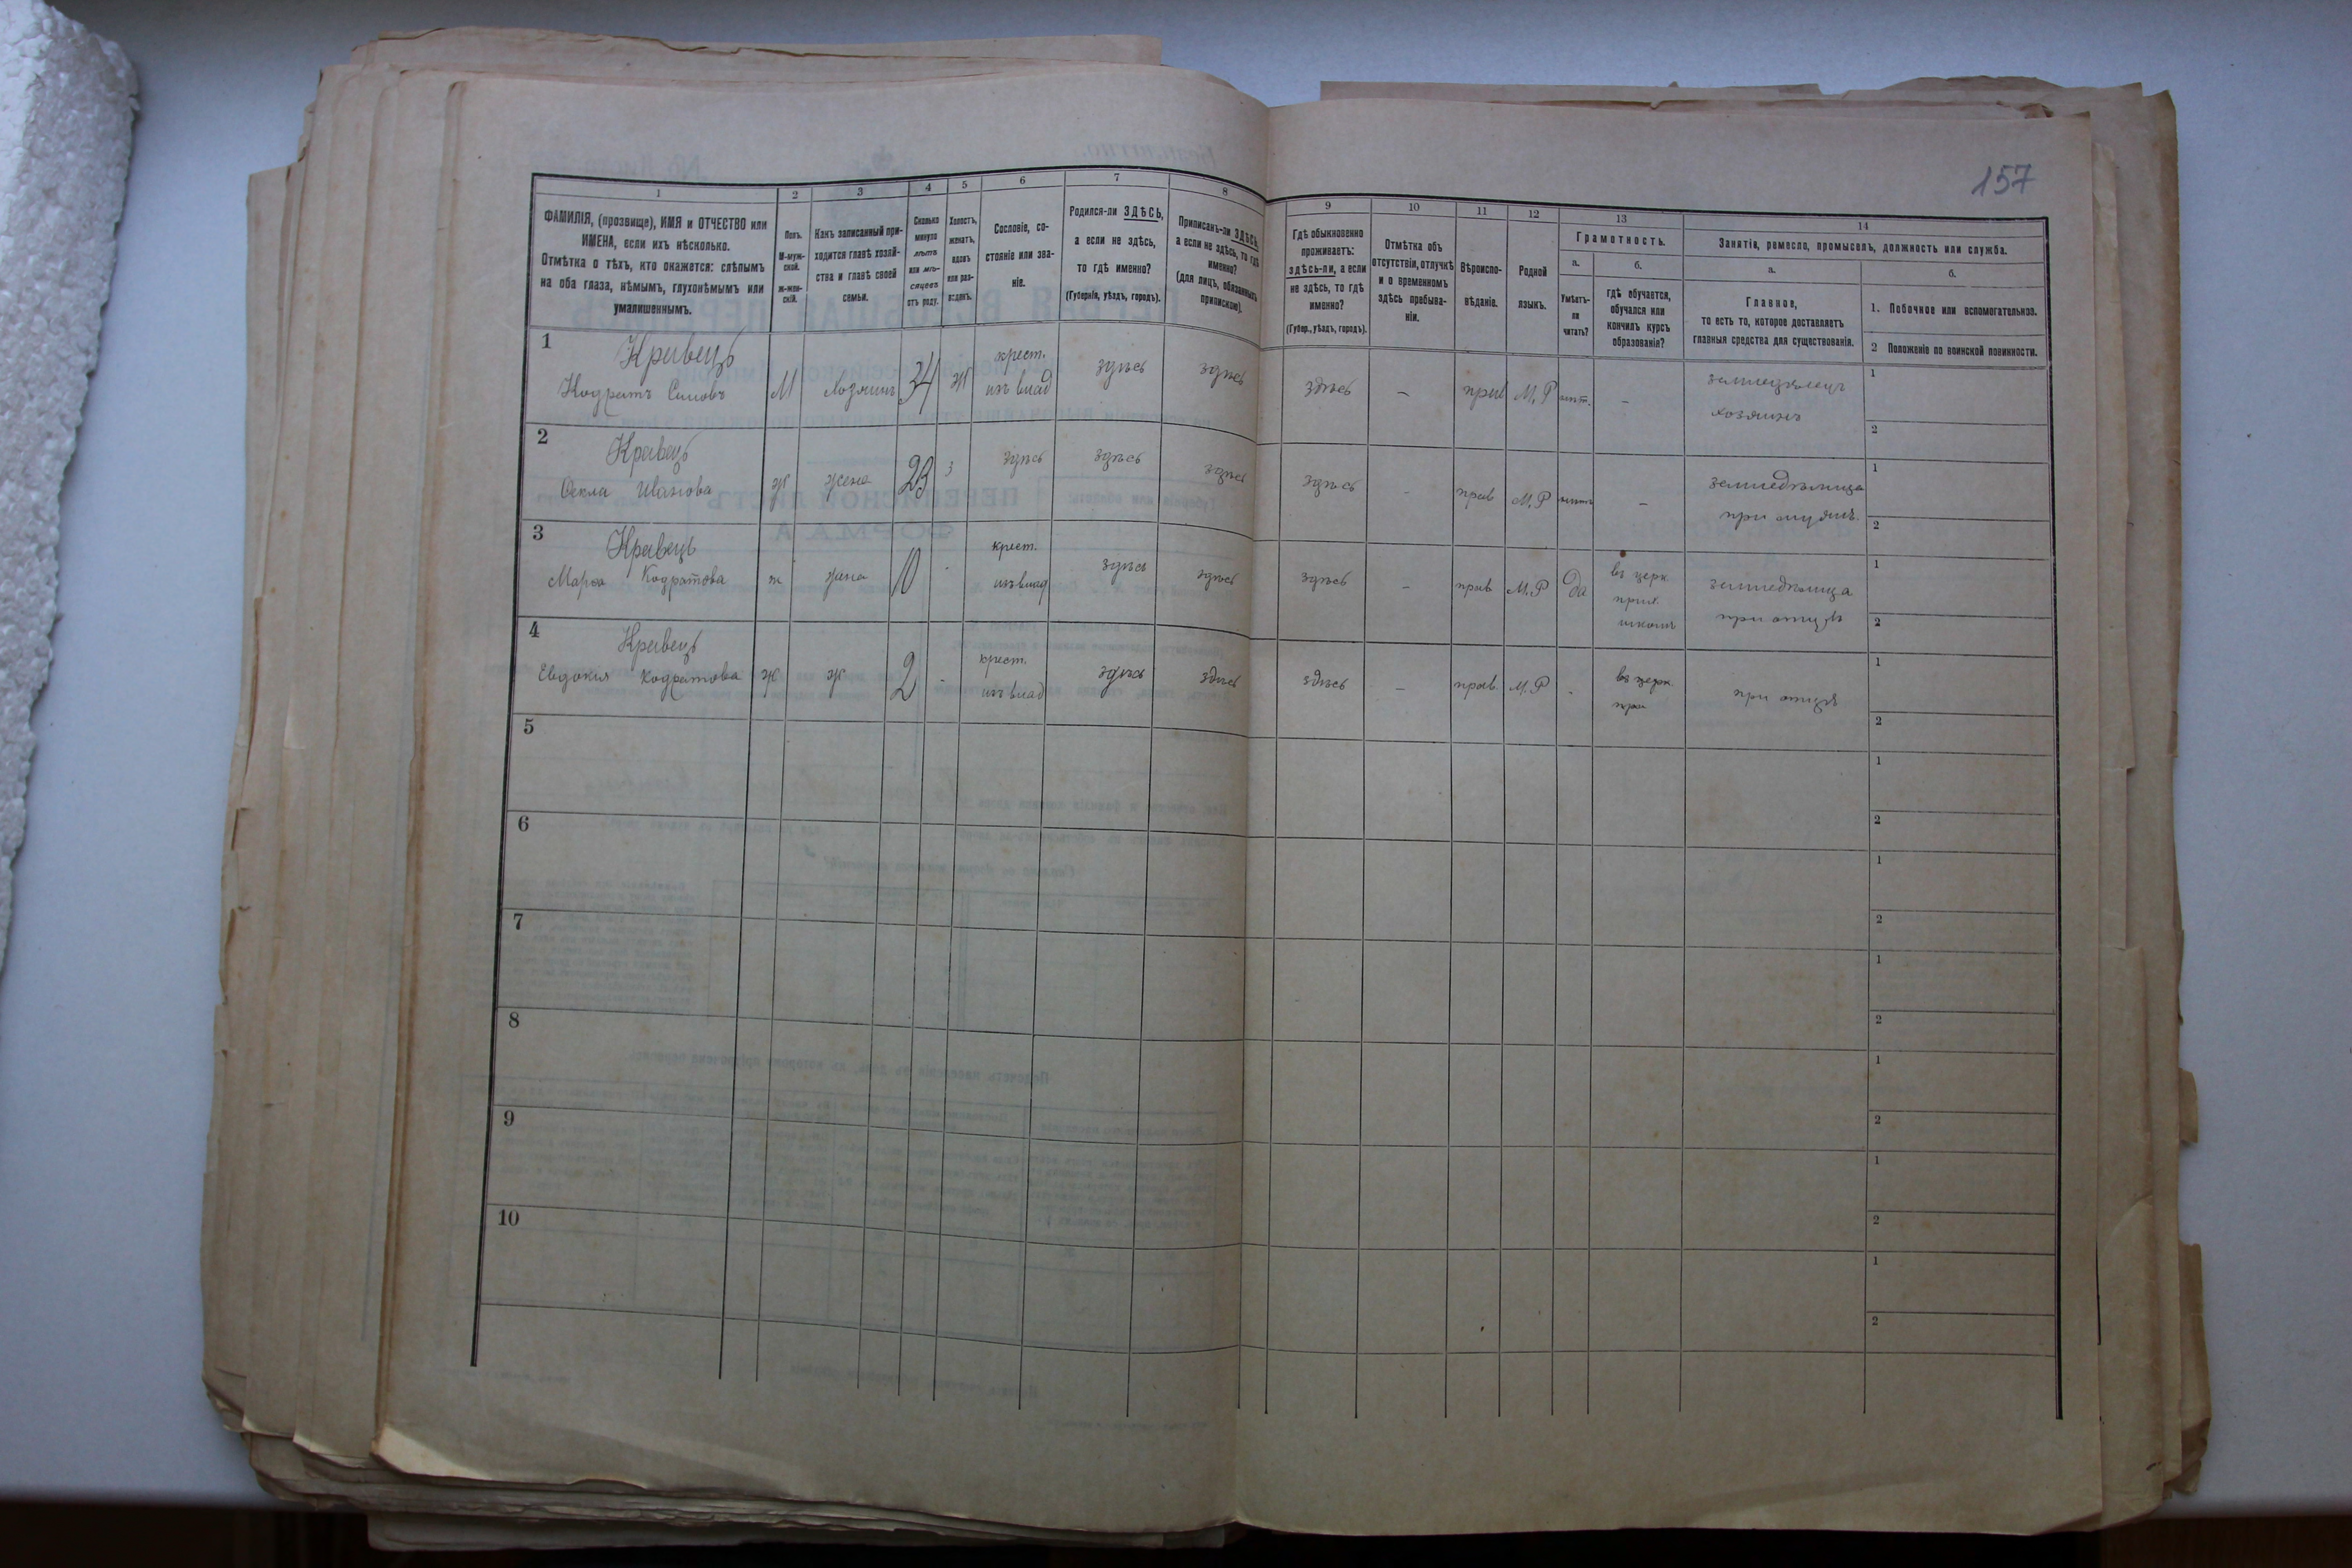 157
1 2 3 4 5 6 7 8 9 10 11 12 13 14
ФАМИЛІЯ, (прозвище), ИМЯ и ОТЧЕСТВО или
ИМЕНА, если ихъ нѣсколько.
Отмѣтка о тѣхъ, кто окажется: слѣпымъ
на оба глаза, нѣмымъ, глухонѣмымъ или
умалишеннымъ.
Полъ.
М-муж-
ской.
ж-жен-
скій.
Какъ записанный при-
ходится главѣ хозяй-
ства и главѣ своей
семьи.
Сколько
минуло
лѣтъ
или мѣ-
сяцевъ
отъ роду.
Холостъ,
женатъ,
вдовъ
или раз-
веденъ.
Сословіе, со-
стояніе или зва-
ніе.
Родился-ли ЗДѢСЬ,
а если не здѣсь,
то гдѣ именно?
(Губернія, уѣздъ, городъ).
Приписанъ-ли ЗДѢСЬ,
а если не здѣсь, то гдѣ
именно?
(для лицъ, обязанныхъ
припискою).
Гдѣ обыкновенно
проживаетъ:
здѣсь-ли, а если
не здѣсь, то гдѣ
именно?
(Губер., уѣздъ, городъ).
Отмѣтка объ
отсутствіи, отлучкѣ
и о временномъ
здѣсь пребыва-
ніи.
Вѣроиспо-
вѣданіе.
Родной
языкъ.
Грамотность.
а.
Умѣетъ-
ли
читать?
б.
гдѣ обучается,
обучался или
кончилъ курсъ
образованія?
Занятіе, ремесло, промыселъ, должность или служба.
а.
Главное,
то есть то, которое доставляетъ
главныя средства для существованія.
б.
1. Побочное или вспомогательное.
2 Положеніе по воинской повинности.
1
Кравецъ крест.
Кодратъ М Хозяинъ 34 ж изъ влад здѣсь здѣсь здѣсь – прав М.Р – земледѣлецъ
хозяинъ
1
2
2
Кравецъ
Фекла Иванова ж жена 23 з здѣсь здѣсь здѣсь здѣсь - прав М.Р – земледѣлица
при
1
2
3
Кравецъ крест.
Марѳа Кодратова ж 10 - изъ влад здѣсь здѣсь здѣсь – прав М.Р Да въ церк земледѣлица
прих.
школѣ при отцѣ
1
2
4
Кравецъ крест.
Евдокия Кодратова ж ж 2 - изъ влад здѣсь здѣсь здѣсь – прав. М.Р - въ церк. при отцѣ
1
2
5
1
2
6
1
2
7
1
2
8
1
2
9
1
2
10
1
2